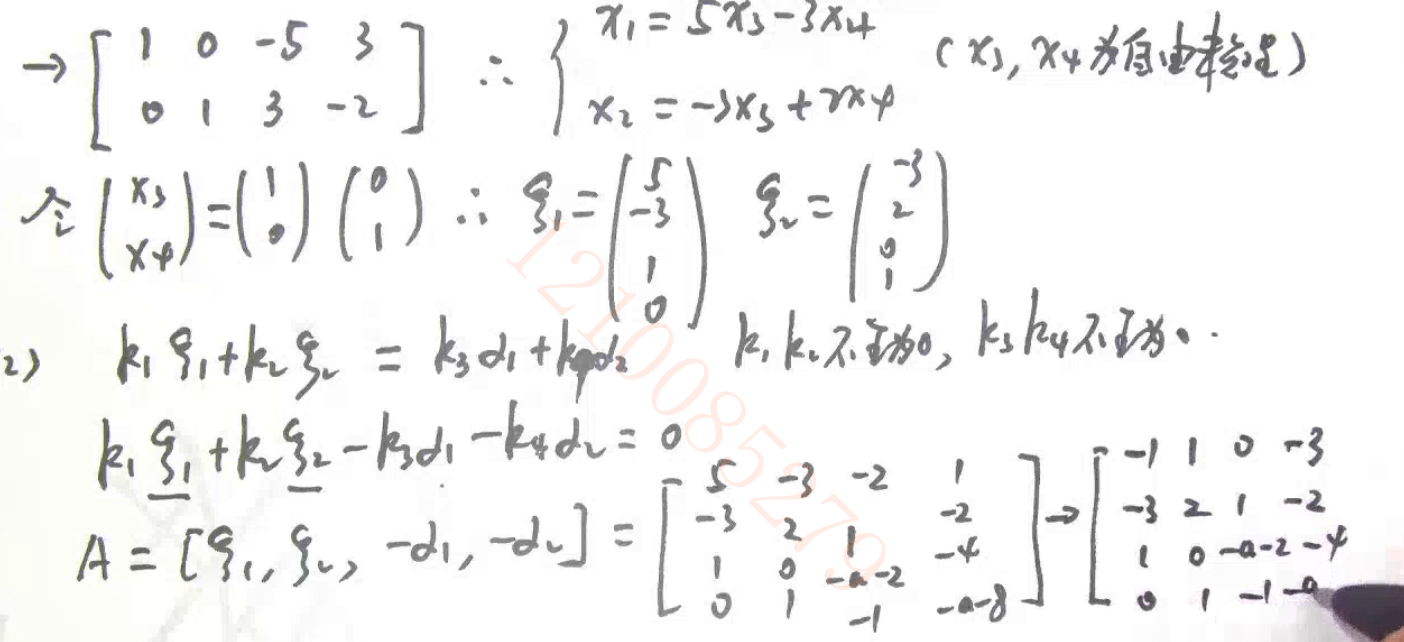 → [1 0 -5 3; 0 1 3 -2] ∴ { x₁ = 5x₃ - 3x₄ ; x₂ = -3x₃ + 2x₄ (x₃, x₄ 为自由未知量)
令 (x₃; x₄) = (1; 0) (0; 1) ∴ ξ₁ = (5; -3; 1; 0) ξ₂ = (-3; 2; 0; 1)
2) k₁ξ₁ + k₂ξ₂ = k₃α₁ + k₄α₂ k₁k₂不全为0, k₃k₄不全为0.
k₁ξ₁ + k₂ξ₂ - k₃α₁ - k₄α₂ = 0
A = [ξ₁, ξ₂, -α₁, -α₂] = [5 -3 -2 1; -3 2 1 -2; 1 0 -a-2 -4; 0 1 -1 -a-8] → [-1 1 0 -3; -3 2 1 -2; 1 0 -a-2 -4; 0 1 -1 -a
1210085279